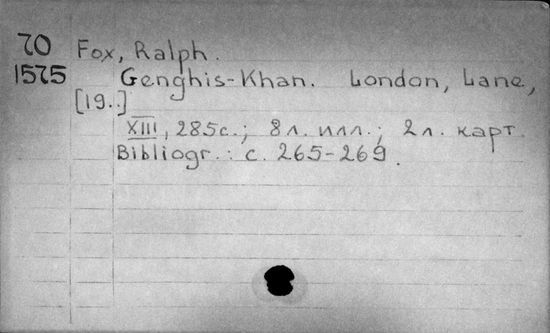 70 Fox, Ralph.
1575 Genghis-Khan. London, Lane,
[19..]
XIII, 285с.; 8 л. илл.; 2 л. карт.
Bibliogr.: с. 265-269.